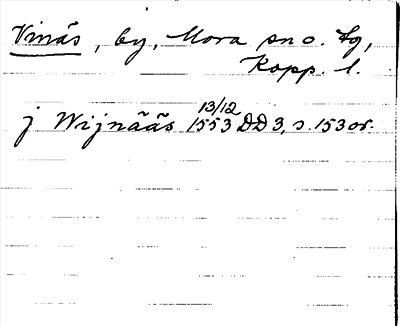 Vinäs, by, Mora sn o. tg,
Kopp. l.
13/12
j Wijnääs 1553 DD 3, s. 153 or.